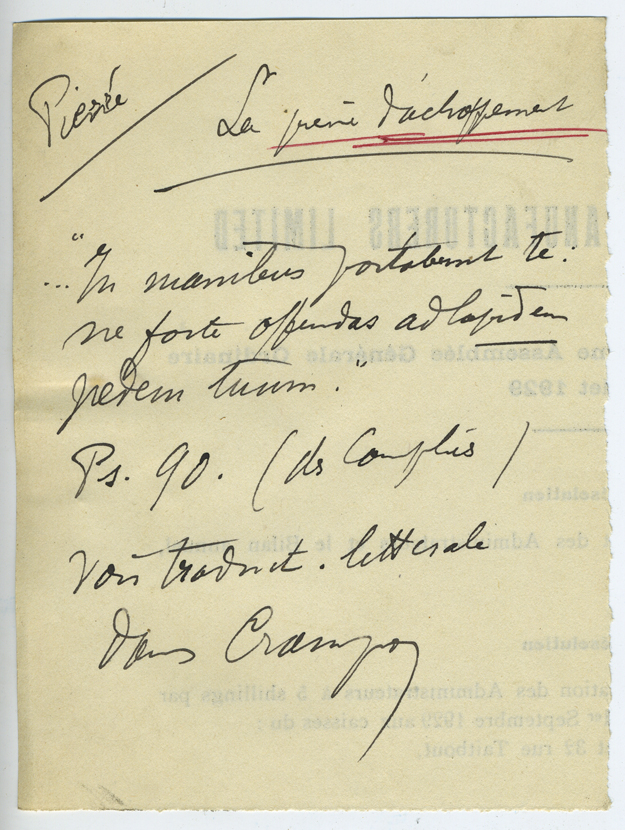 Pierre
La pierre d'achoppement
..."In manibus portabunt te:
ne forte offendas ad lapidem
pedem tuum."
Ps. 90. (des Complies)
Voir traduct. littérale
dans Crampon
ANUFACTURERS LIMITED
me Assemblée Générale Ordinaire
et 1929
ésolution
des Administrateurs et le Bilan
ésolution
ation des Administrateurs à 5 shillings par
1er Septembre 1929 aux caisses du:
et 37 rue Taitbout.